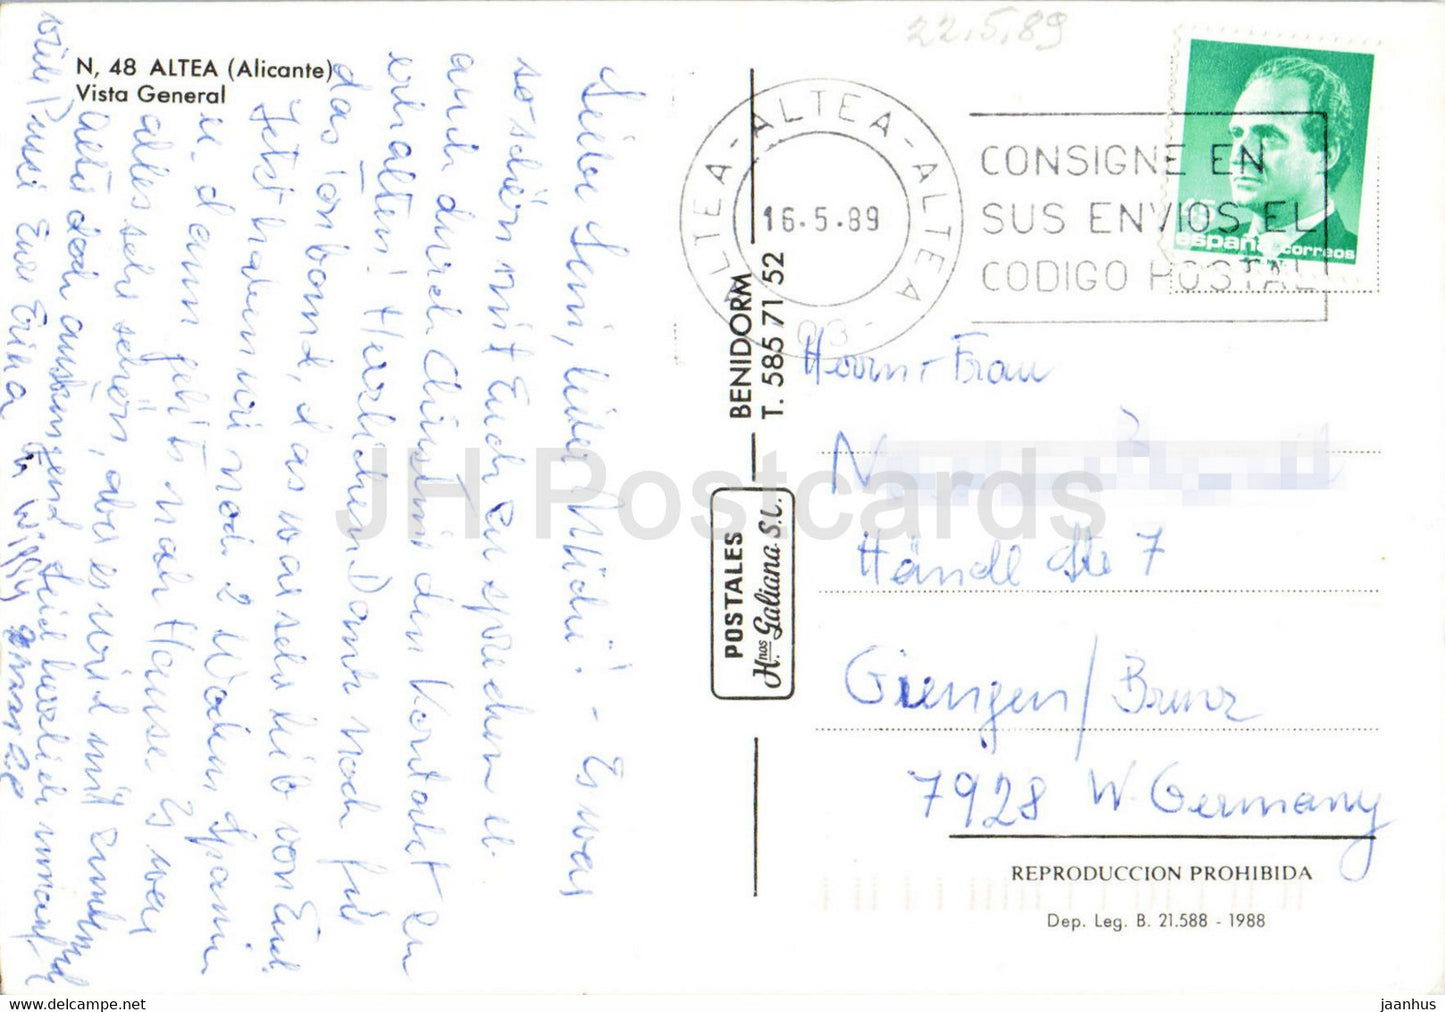 22.5.89
N, 48 ALTEA (Alicante)
Vista General
Liebe Leni, lieber Michi! - Es war
so schön mit Euch zu sprechen u.
auch durch Christni den Kontakt zu
erhalten! Herzlichen Dank noch für
das Tonband, das war sehr lieb von Euch.
Jetzt haben wir noch 2 Wochen Spanien
u. dann geht's nach Hause. Es war
alles sehr schön, aber es wird mit zunehmend
Alter doch anstrengend. Seid herzlich umarmt
viele Bussi Eure Erika u. Willy
ALTEA-ALTEA-ALTEA
16-5-89
03-
CONSIGNE EN
SUS ENVIOS EL
CODIGO POSTAL
15
españa correos
BENIDORM
T. 585 71 52
POSTALES
Hnos Galiana S.L.
Herrn + Frau
Händl Str 7
Giengen/Brenz
7928 W. Germany
REPRODUCCION PROHIBIDA
Dep. Leg. B. 21.588 - 1988
JH Postcards
www.jhpostcard.com
jaanhus